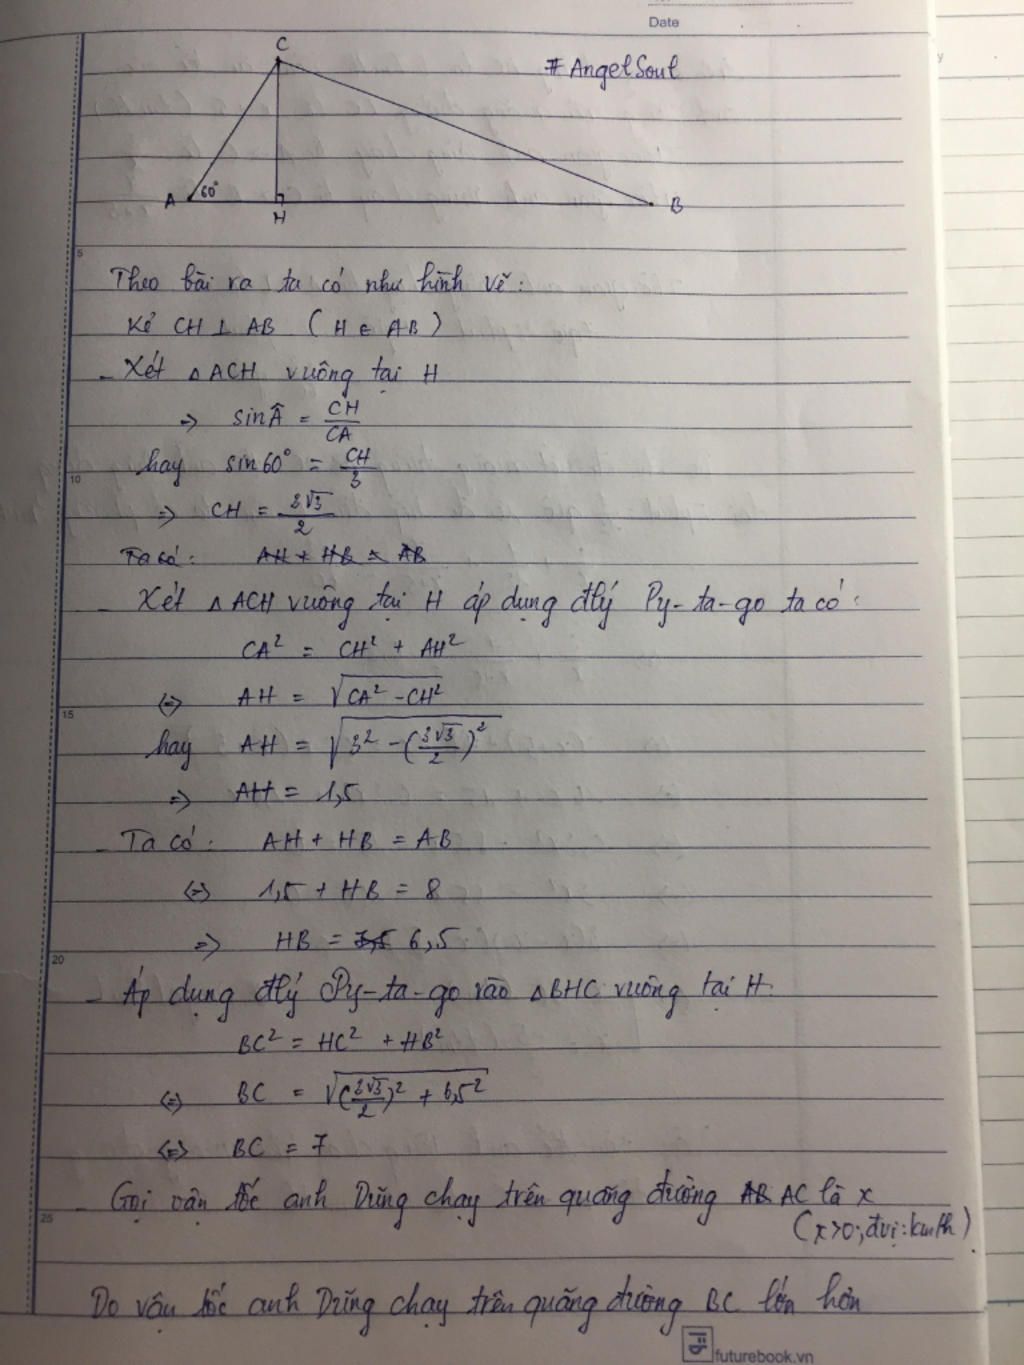 Date
C
# AngelSoul
A 60°
H
B
5
Theo bài ra ta có như hình vẽ:
Kẻ CH ⊥ AB ( H ∈ AB )
- Xét △ ACH vuông tại H
=> sin Â = CH/CA
hay sin 60° = CH/3
10
=> CH = 3√3/2
Ta có: AH + HB = AB
- Xét △ ACH vuông tại H áp dụng đlý Py-ta-go ta có:
CA² = CH² + AH²
<=> AH = √(CA² - CH²)
15
hay AH = √(3² - (3√3/2)²)
=> AH = 1,5
- Ta có: AH + HB = AB
<=> 1,5 + HB = 8
=> HB = 7,5 6,5
20
- Áp dụng đlý Py-ta-go vào △ BHC vuông tại H:
BC² = HC² + HB²
<=> BC = √((3√3/2)² + 6,5²)
<=> BC = 7
- Gọi vận tốc anh Dũng chạy trên quãng đường AB AC là x
25
(x>0; đvị: km/h)
Do vận tốc anh Dũng chạy trên quãng đường BC lớn hơn
futurebook.vn